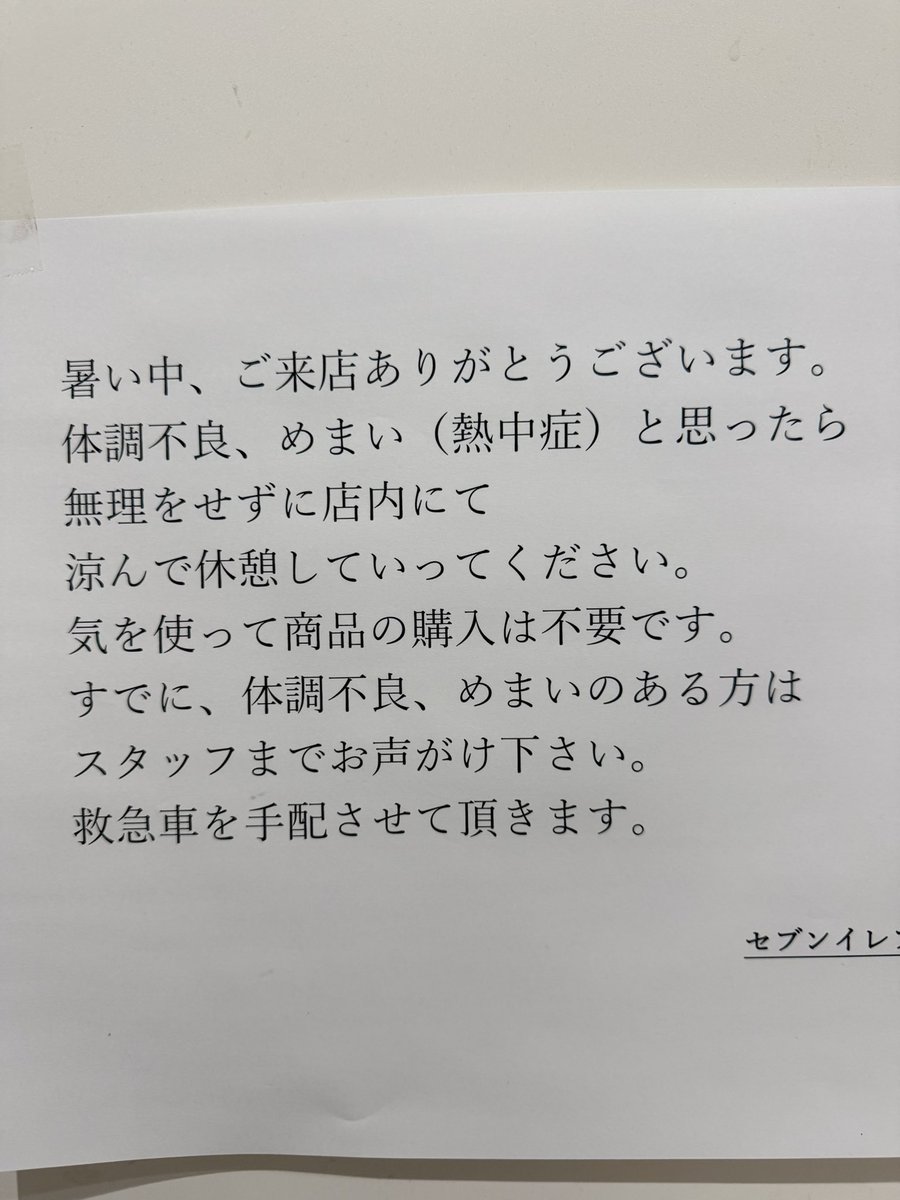 暑い中、ご来店ありがとうございます。
体調不良、めまい（熱中症）と思ったら
無理をせずに店内にて
涼んで休憩していってください。
気を使って商品の購入は不要です。
すでに、体調不良、めまいのある方は
スタッフまでお声がけ下さい。
救急車を手配させて頂きます。
セブンイレ